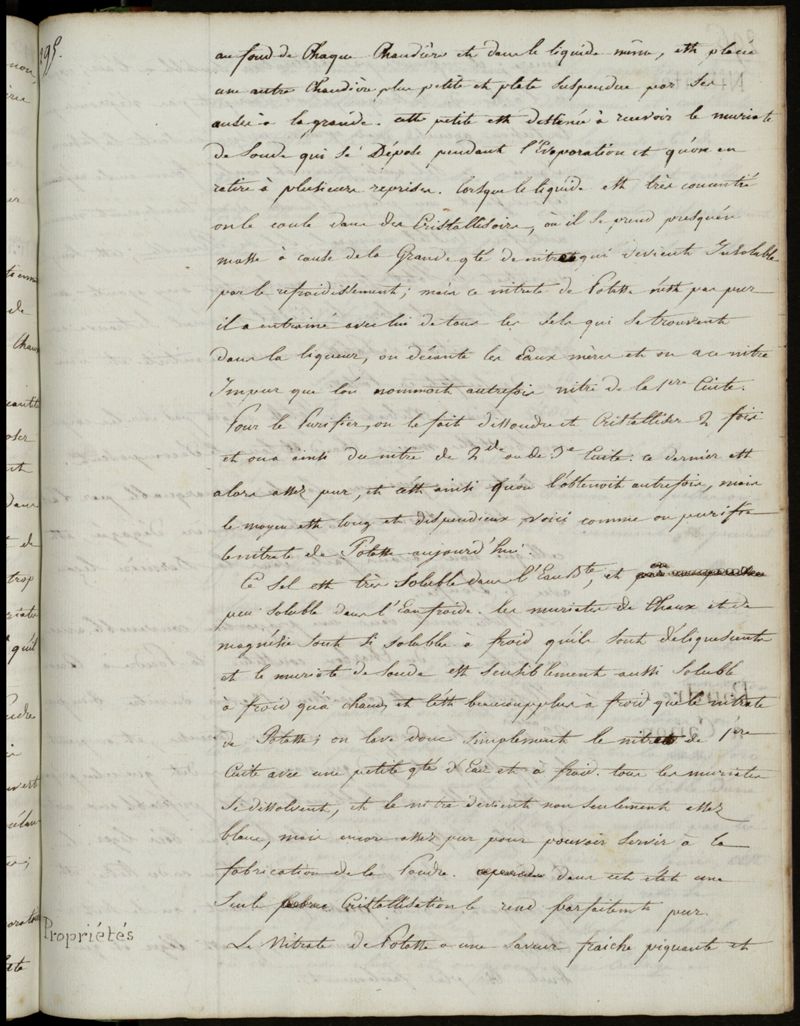 295.
au fond de Chaque Chaudière et dans le liquide même, est placée
une autre Chaudière plus petite et plate suspendue par ses
anses à la grande. cette petite est destinée à recevoir le muriate
de soude qui se Dépose pendant l'Evaporation et qu'on en
retire à plusieurs reprises. lorsque le liquide est très concentré
on le coule dans des Cristallisoirs, où il se prend presqu'en
masse à cause de la Grande qté de nitrate qui devient Insoluble
par le refroidissement; mais ce nitrate de Potasse n'est pas pur
il a entrainé avec lui de tous les sels qui se trouvent
dans la liqueur, on décante les Eaux mères et on a ce nitre
Impur que l'on nommoit autrefois nitre de la 1ere Cuite.
Pour le Purifier, on le fait dissoudre et Cristalliser 2 fois
et on a ainsi du nitre de 2de ou de 3e Cuite: ce dernier est
alors assez pur, et c'est ainsi qu'on l'obtenoit autrefois, mais
le moyen est long et dispendieux, voici comme on purifie
le nitrate de Potasse aujourd'hui.
Ce sel est très soluble dans l'Eau Bte, et
peu soluble dans l'Eau froide. les muriates de Chaux et de
magnésie sont si solubles à froid qu'ils sont déliquescents
et le muriate de soude est sensiblement aussi soluble
à froid qu'à chaud, et l'est beaucoup plus à froid que le nitrate
de Potasse; on lave donc simplement le nitrate de 1ere
Cuite avec une petite qté d'Eau et à froid. tous les muriates
se dissolvent, et le nitre devient non seulement assez
blanc, mais encore assez pur pour pouvoir servir à la
fabrication de la Poudre. dans cet état une
seule Cristallisation le rend parfaitemt pur.
Propriétés
Le Nitrate de Potasse a une saveur fraiche piquante et